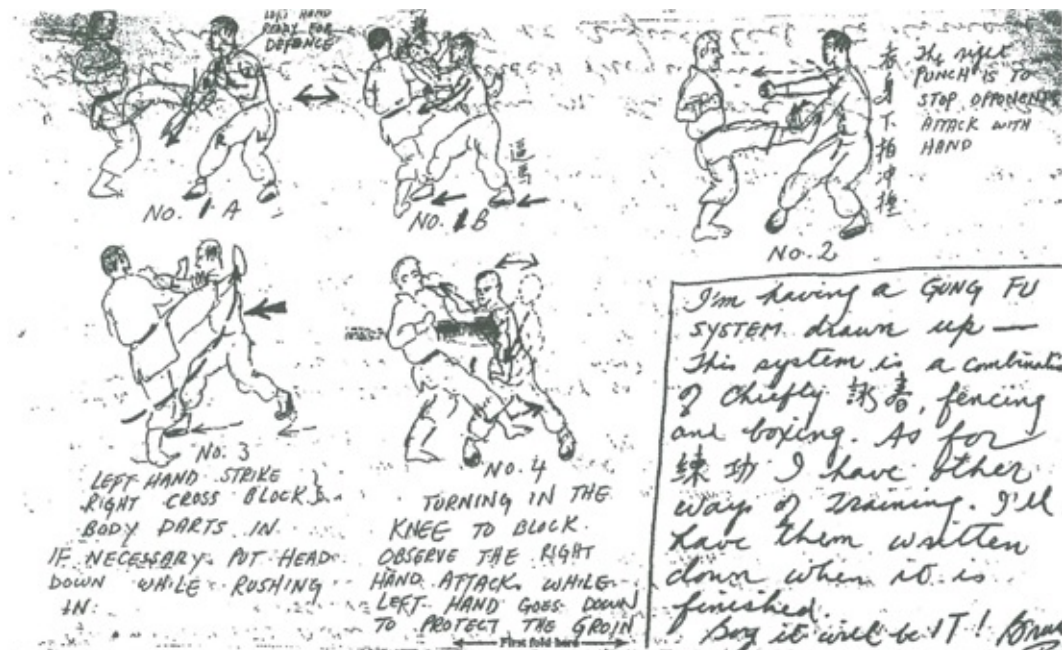 LEFT HAND
READY FOR
DEFENCE
NO. 1 A
NO. 1 B
NO. 2
The right
PUNCH IS TO
STOP OPPONENT
ATTACK WITH
HAND
NO. 3
LEFT HAND STRIKE
RIGHT CROSS BLOCK &
BODY DARTS IN
IF NECESSARY PUT HEAD
DOWN WHILE RUSHING
IN
NO. 4
TURNING IN THE
KNEE TO BLOCK.
OBSERVE THE RIGHT
HAND ATTACK WHILE
LEFT HAND GOES DOWN
TO PROTECT THE GROIN
First fold here
I'm having a GUNG FU
SYSTEM drawn up —
This system is a combination
of chiefly 詠春, fencing
and boxing. As for
練功 I have other
ways of Training. I'll
have them written
down when it is
finished.
Boy it will be IT! Bruce